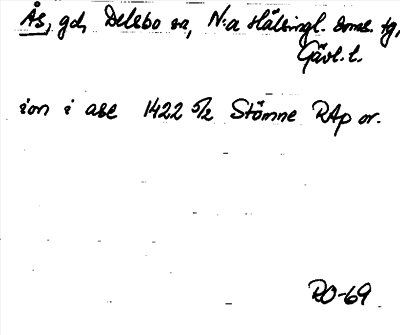 Ås, gd, Delsbo sn, N:a Hälsingl. doms. tg,
Gävl. l.
ion i ase 1422 5/2 Stömne RAp or.
RO-69